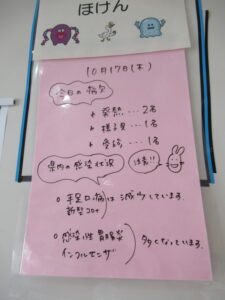 ほけん
10月17日(木)
今日の病欠
発熱…2名
様子見…1名
受診…1名
県内の感染状況
注意!!
手足口病
新型コロナ
は減少しています。
感染性胃腸炎
インフルエンザ
多くなっています。